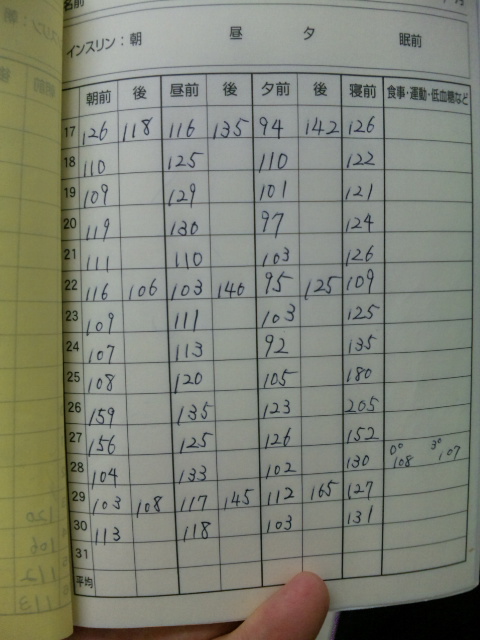 名前 月
インスリン：朝 昼 夕 眠前
朝前 後 昼前 後 夕前 後 寝前 食事・運動・低血糖など
17 126 118 116 135 94 142 126
18 110 125 110 122
19 109 129 101 121
20 119 130 97 124
21 111 110 103 126
22 116 106 103 146 95 125 109
23 109 111 103 125
24 107 113 92 135
25 108 120 105 180
26 159 135 123 205
27 156 125 126 152
28 104 133 102 130 0° 108 3° 107
29 103 108 117 145 112 165 127
30 113 118 103 131
31
平均